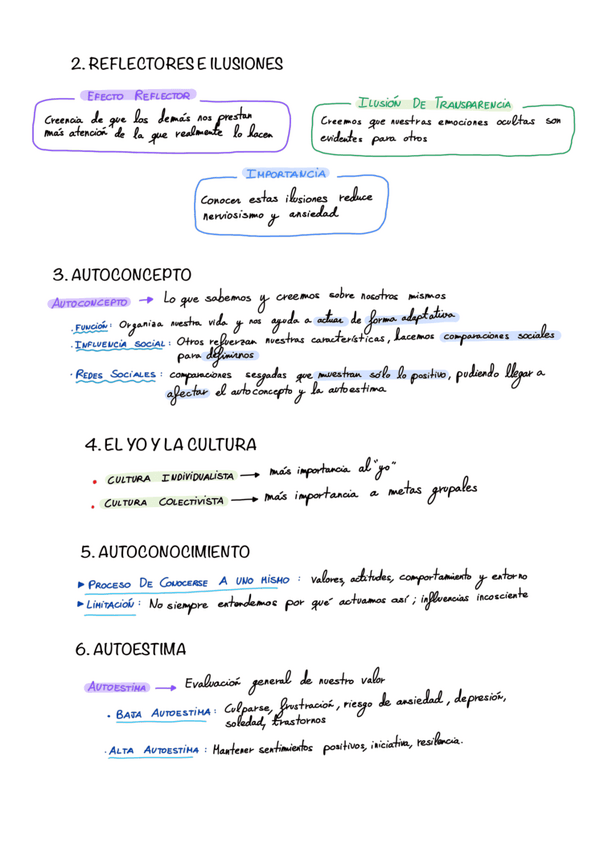 2. REFLECTORES E ILUSIONES
EFECTO REFLECTOR
Creencia de que los demás nos prestan
más atención de la que realmente lo hacen
ILUSIÓN DE TRANSPARENCIA
Creemos que nuestras emociones ocultas son
evidentes para otros
IMPORTANCIA
Conocer estas ilusiones reduce
nerviosismo y ansiedad
3. AUTOCONCEPTO
AUTOCONCEPTO → Lo que sabemos y creemos sobre nosotros mismos
· FUNCIÓN: Organiza nuestra vida y nos ayuda a actuar de forma adaptativa
· INFLUENCIA SOCIAL: Otros refuerzan nuestras características, hacemos comparaciones sociales
para definirnos
· REDES SOCIALES: comparaciones sesgadas que muestran sólo lo positivo, pudiendo llegar a
afectar el autoconcepto y la autoestima
4. EL YO Y LA CULTURA
• CULTURA INDIVIDUALISTA → más importancia al "yo"
• CULTURA COLECTIVISTA → más importancia a metas grupales
5. AUTOCONOCIMIENTO
▸ PROCESO DE CONOCERSE A UNO MISMO: valores, actitudes, comportamiento y entorno
▸ LIMITACIÓN: No siempre entendemos por qué actuamos así; influencias incosciente
6. AUTOESTIMA
AUTOESTIMA → Evaluación general de nuestro valor
• BAJA AUTOESTIMA: Culparse, frustración, riesgo de ansiedad, depresión,
soledad, trastornos
· ALTA AUTOESTIMA: Mantener sentimientos positivos, iniciativa, resilencia.